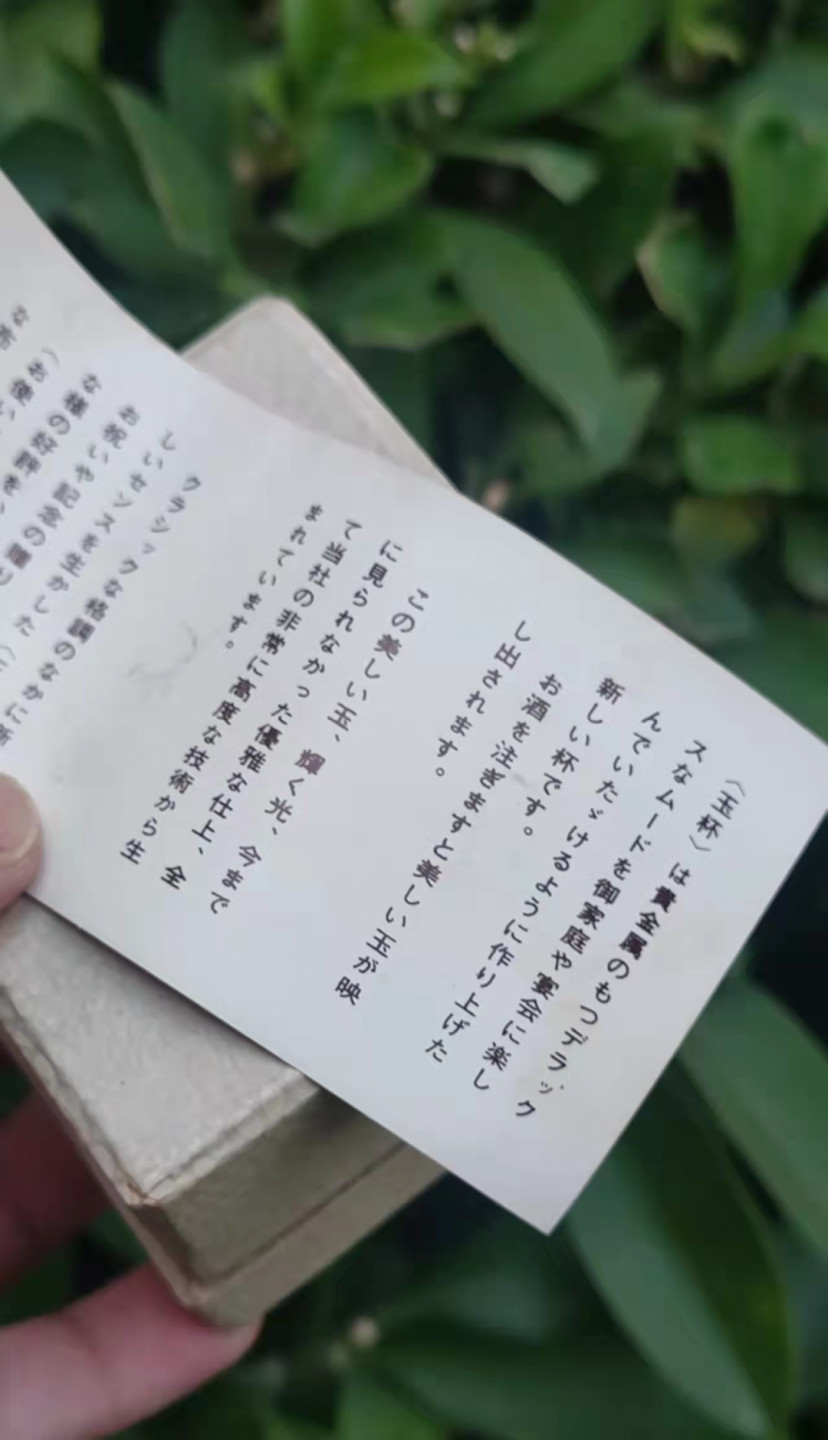 〈玉杯〉は貴金属のもつデラック
スなムードを御家庭や宴会に楽し
んでいたゞけるように作り上げた
新しい杯です。
お酒を注ぎますと美しい玉が映
し出されます。
この美しい玉、輝く光、今まで
に見られなかった優雅な仕上、全
て当社の非常に高度な技術から生
まれています。
クラシックな格調のなかに新
しいセンスを生かした
お祝いや記念の贈り
な様の好評を